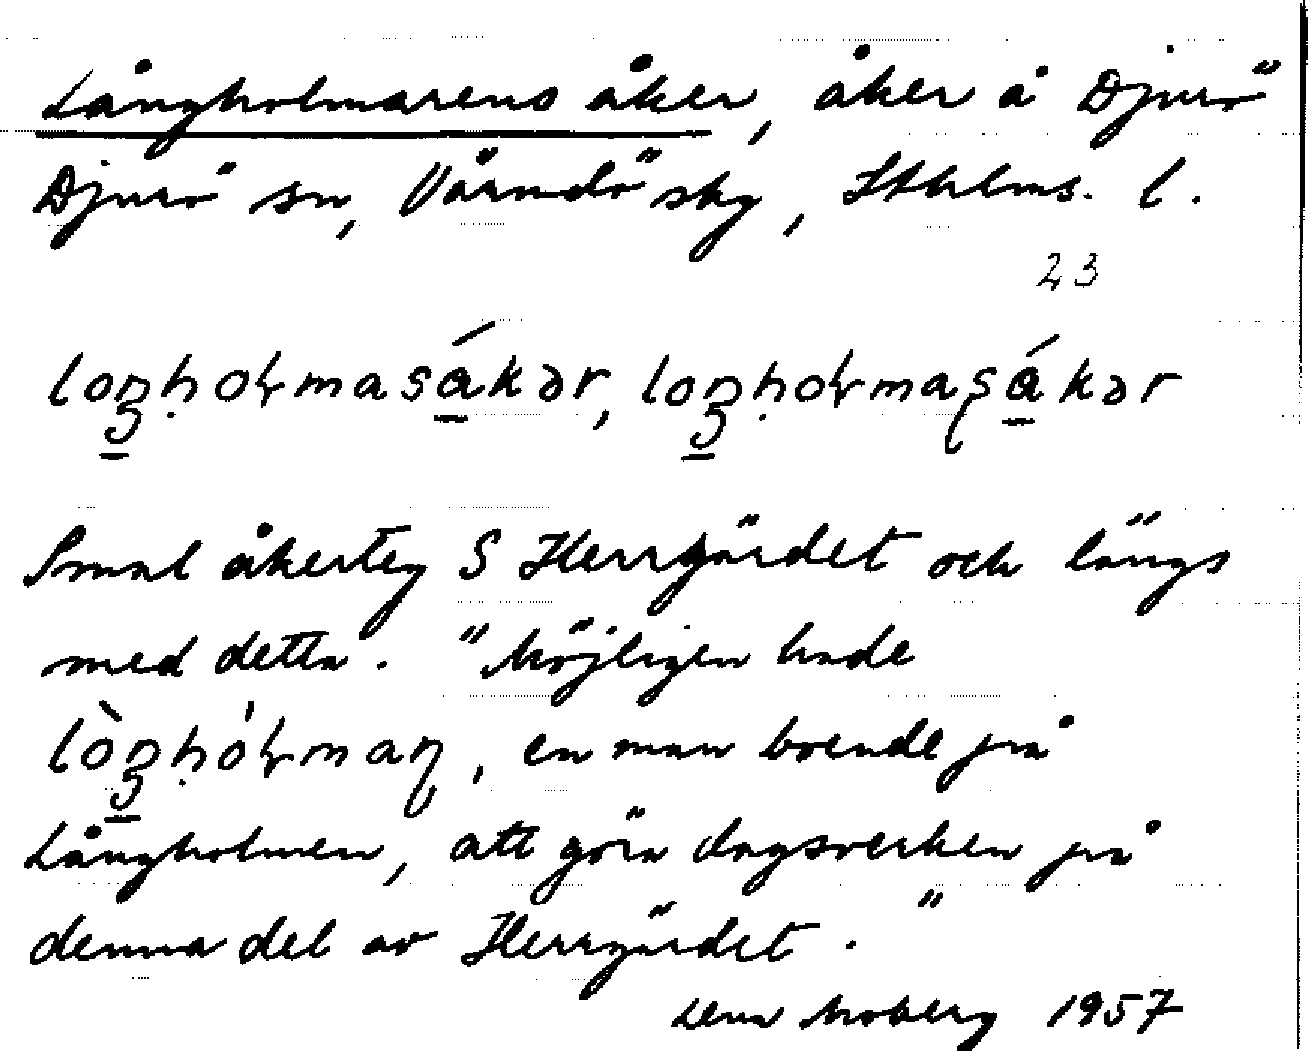 Långholmarens åker, åker å Djurö
Djurö sn, Värmdö skg, Sthlms. l.
23
loŋhoɽmasákər, loŋhoɽmaʂákər
Smal åkerteg S Herrgärdet och längs
med detta. "Möjligen hade
lòŋhóɽmaɳ, en man boende på
Långholmen, att göra dagsverken på
denna del av Herrgärdet."
Lena Moberg 1957